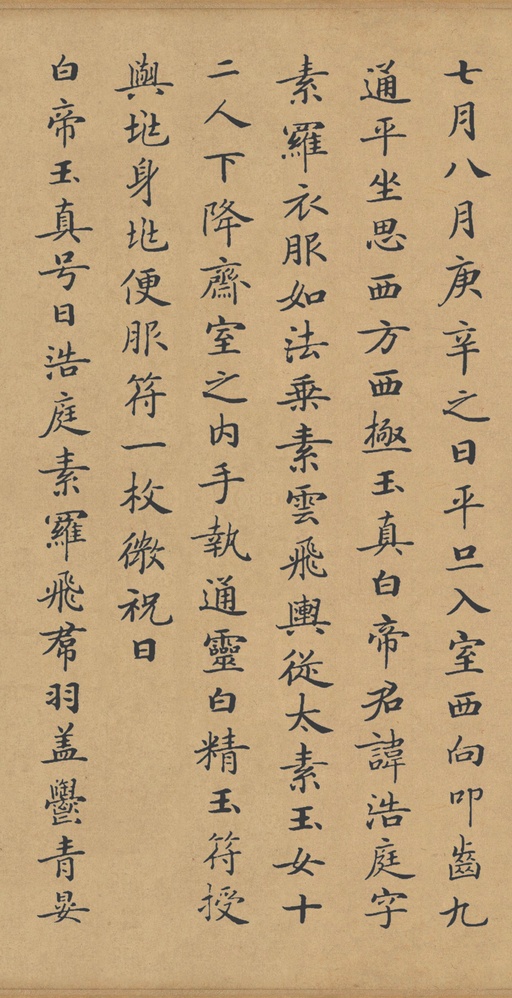 七月八月庚辛之日平旦入室西向叩齒九
通平坐思西方西極玉真白帝君諱浩庭字
素羅衣服如法乗素雲飛輿從太素玉女十
二人下降齋室之内手執通靈白精玉符授
與兆身兆便服符一枚微祝曰
白帝玉真号曰浩庭素羅飛帬羽盖欝青晏